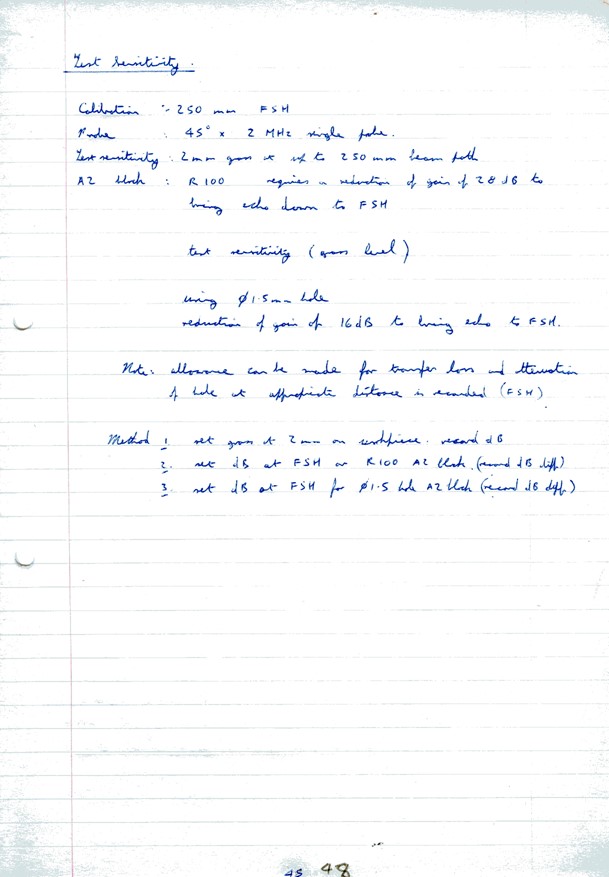 Test Sensitivity.
Calibration :- 250 mm FSH
Probe : 45° x 2 MHz single probe.
Test sensitivity : 2mm grass at up to 250 mm beam path
A2 block : R100 requires a reduction of gain of 28 dB to
bring echo down to FSH
test sensitivity (grass level)
using Ø1.5mm hole
reduction of gain of 16dB to bring echo to FSH.
Note: allowance can be made for transfer loss and attenuation
if hole at appropriate distance is recorded (FSH)
Method 1. set grass at 2mm on workpiece. record dB
2. set dB at FSH on R100 A2 block. (record dB diff.)
3. set dB at FSH for Ø1.5 hole A2 block (record dB diff.)
48